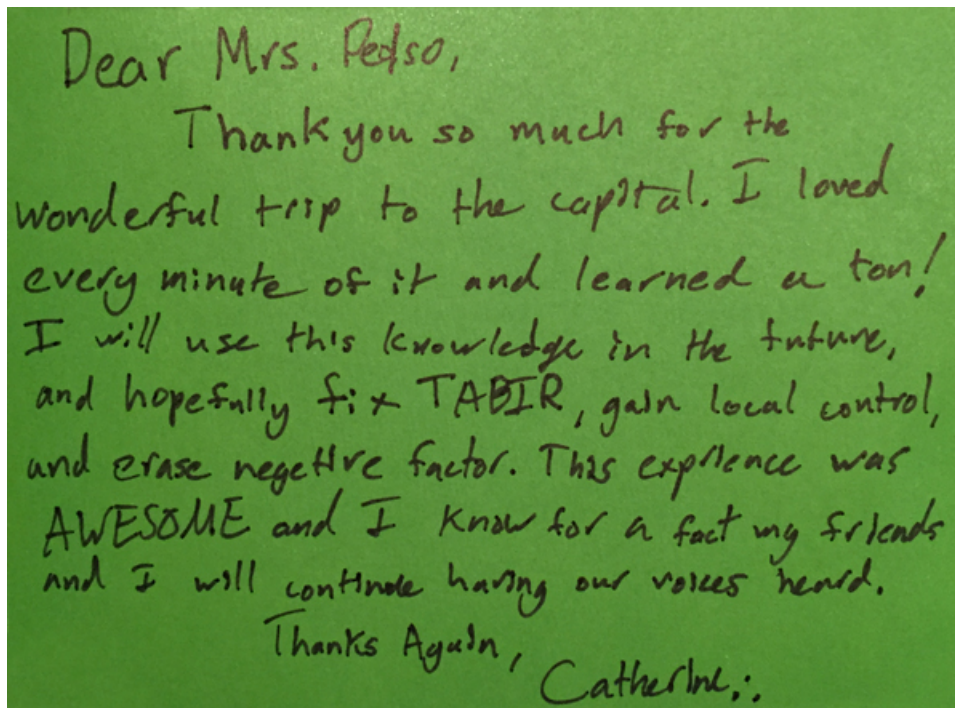 Dear Mrs. Pedso,
Thank you so much for the
wonderful trip to the capital. I loved
every minute of it and learned a ton!
I will use this knowledge in the future,
and hopefully fix TABIR, gain local control,
and erase negetive factor. This exprience was
AWESOME and I know for a fact my friends
and I will continue having our voices heard.
Thanks Again,
Catherine